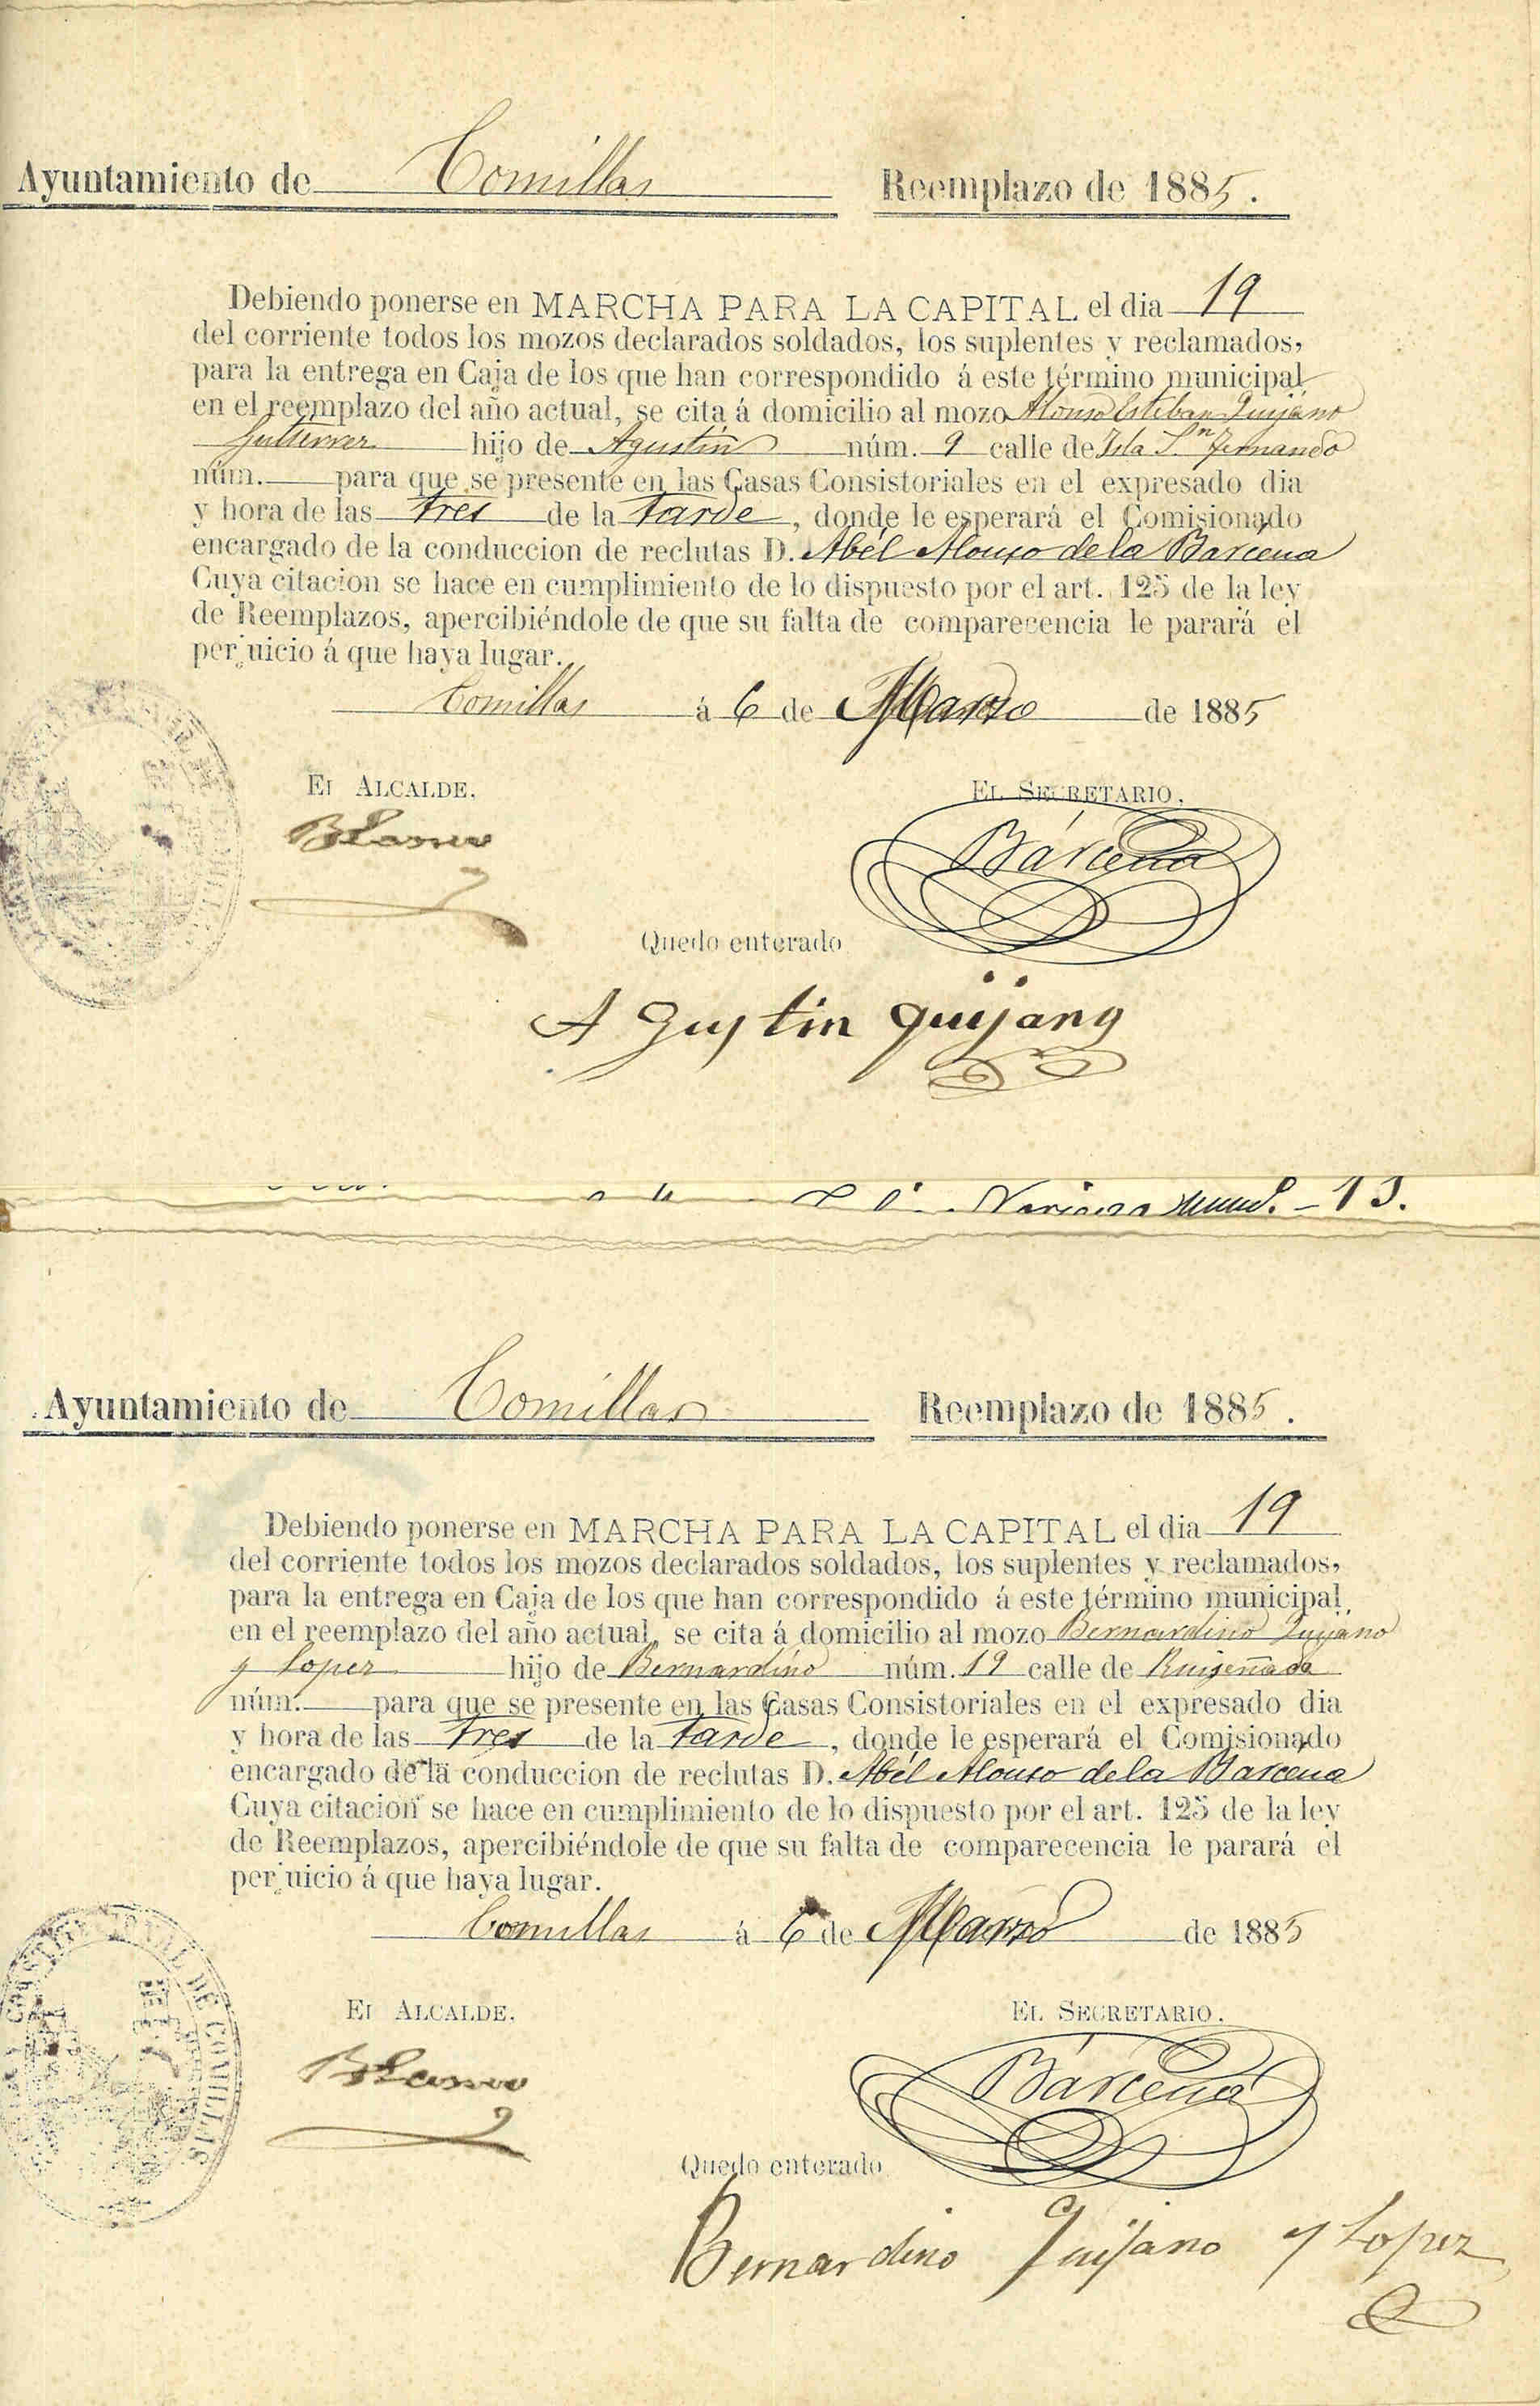 Ayuntamiento de Comillas Reemplazo de 1885.
Debiendo ponerse en MARCHA PARA LA CAPITAL el dia 19
del corriente todos los mozos declarados soldados, los suplentes y reclamados,
para la entrega en Caja de los que han correspondido á este término municipal
en el reemplazo del año actual, se cita á domicilio al mozo Alonso Esteban Quijano
Gutierrez hijo de Agustin núm. 9 calle de Isla Sn Fernando
núm. para que se presente en las Casas Consistoriales en el expresado dia
y hora de las tres de la tarde, donde le esperará el Comisionado
encargado de la conduccion de reclutas D. Abél Alonso de la Barcena
Cuya citacion se hace en cumplimiento de lo dispuesto por el art. 125 de la ley
de Reemplazos, apercibiéndole de que su falta de comparecencia le parará el
perjuicio á que haya lugar.
Comillas á 6 de Marzo de 1885
El Alcalde. El Secretario.
Blanco Bárcena
Quedo enterado
Agustin Quijano
13.
Ayuntamiento de Comillas Reemplazo de 1885.
Debiendo ponerse en MARCHA PARA LA CAPITAL el dia 19
del corriente todos los mozos declarados soldados, los suplentes y reclamados,
para la entrega en Caja de los que han correspondido á este término municipal,
en el reemplazo del año actual, se cita á domicilio al mozo Bernardino Quijano
y Lopez hijo de Bernardino núm. 19 calle de Ruiseñada
núm. para que se presente en las Casas Consistoriales en el expresado dia
y hora de las tres de la tarde, donde le esperará el Comisionado
encargado de la conduccion de reclutas D. Abél Alonso de la Barcena
Cuya citacion se hace en cumplimiento de lo dispuesto por el art. 125 de la ley
de Reemplazos, apercibiéndole de que su falta de comparecencia le parará el
perjuicio á que haya lugar.
Comillas á 6 de Marzo de 1885
El Alcalde. El Secretario.
Blanco Bárcena
DE COMILLAS
Quedo enterado
Bernardino Quijano y Lopez